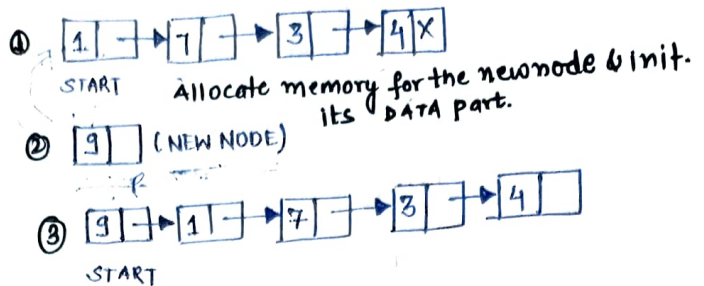 ① 1. 7 3 4 X
START Allocate memory for the new node & init.
its DATA part.
② 9 (NEW NODE)
③ 9 1 7 3 4
START